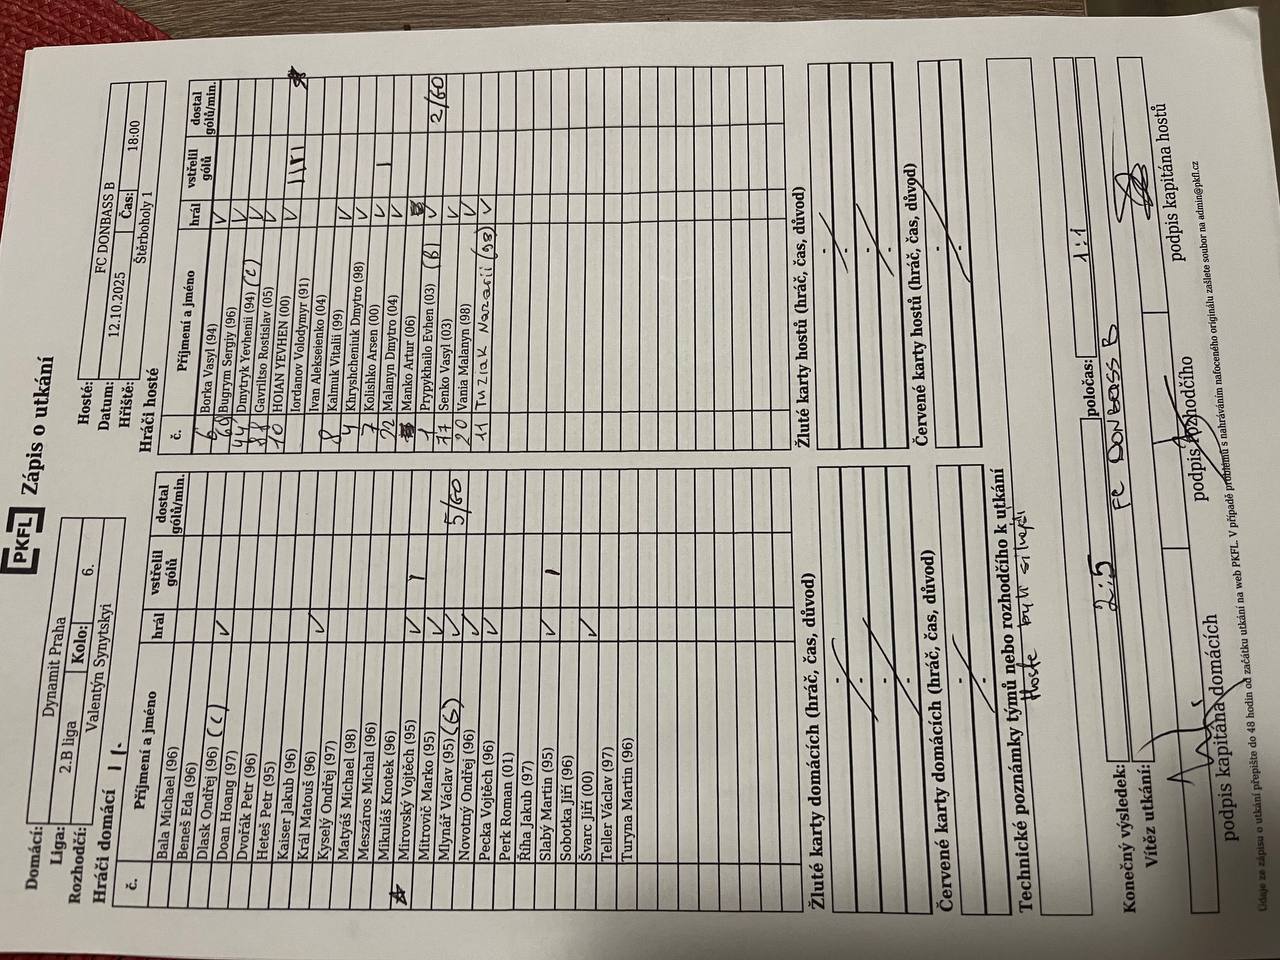 [PKFL] Zápis o utkání
Domácí: Dynamit Praha
Liga: 2.B liga Kolo: 6.
Rozhodčí: Valentýn Synytskyi
Hráči domácí 11.
č. Příjmení a jméno hrál vstřelil gólů dostal gólů/min.
Bala Michael (96)
Beneš Eda (96)
Dlask Ondřej (96)
Doan Hoang (97) (C) ✓
Dvořák Petr (96)
Heteš Petr (95)
Kaiser Jakub (96)
Král Matouš (96)
Kyselý Ondřej (97) ✓
Matyáš Michael (98)
Meszáros Michal (96)
Mikuláš Knotek (96)
Mirovský Vojtěch (95) ✓ 1
Mitrovič Marko (95) ✓
Mlynář Václav (95) (G) ✓ 5/60
Novotný Ondřej (96) ✓
Pecka Vojtěch (96) ✓
Perk Roman (01)
Říha Jakub (97)
Slabý Martin (95) ✓ 1
Sobotka Jiří (96)
Švarc Jiří (00) ✓
Teller Václav (97)
Turyna Martin (96)
Žluté karty domácích (hráč, čas, důvod)
Červené karty domácích (hráč, čas, důvod)
Hosté: FC DONBASS B
Datum: 12.10.2025 Čas: 18:00
Hřiště: Štěrboholy 1
Hráči hosté
č. Příjmení a jméno hrál vstřelil gólů dostal gólů/min.
Borka Vasyl (94)
Bugrym Sergiy (96) ✓
44 Dmytryk Yevhenii (94) (C) ✓
Gavriltso Rostislav (05) ✓
10 HOIAN YEVHEN (00) ✓
Iordanov Volodymyr (91) ✓ 1111
Ivan Alekseienko (04)
8 Kalmuk Vitalii (99)
4 Khryshcheniuk Dmytro (98) ✓
7 Kolishko Arsen (00) ✓
22 Malanyn Dmytro (04) ✓ 1
Manko Artur (06) ✓
1 Prypykhailo Evhen (03) (B) ✓ 2/60
77 Senko Vasyl (03) ✓
20 Vania Malanyn (98) ✓
11 Tuziak Nazarii (98) ✓
Žluté karty hostů (hráč, čas, důvod)
Červené karty hostů (hráč, čas, důvod)
Technické poznámky týmů nebo rozhodčího k utkání
Hosté byli silnější
Konečný výsledek: 2:5 poločas: 1:1
Vítěz utkání: FC DONBASS B
podpis kapitána domácích podpis rozhodčího podpis kapitána hostů
Údaje ze zápisu o utkání přepište do 48 hodin od začátku utkání na web PKFL. V případě problémů s nahráváním nafoceného originálu zašlete soubor na admin@pkfl.cz